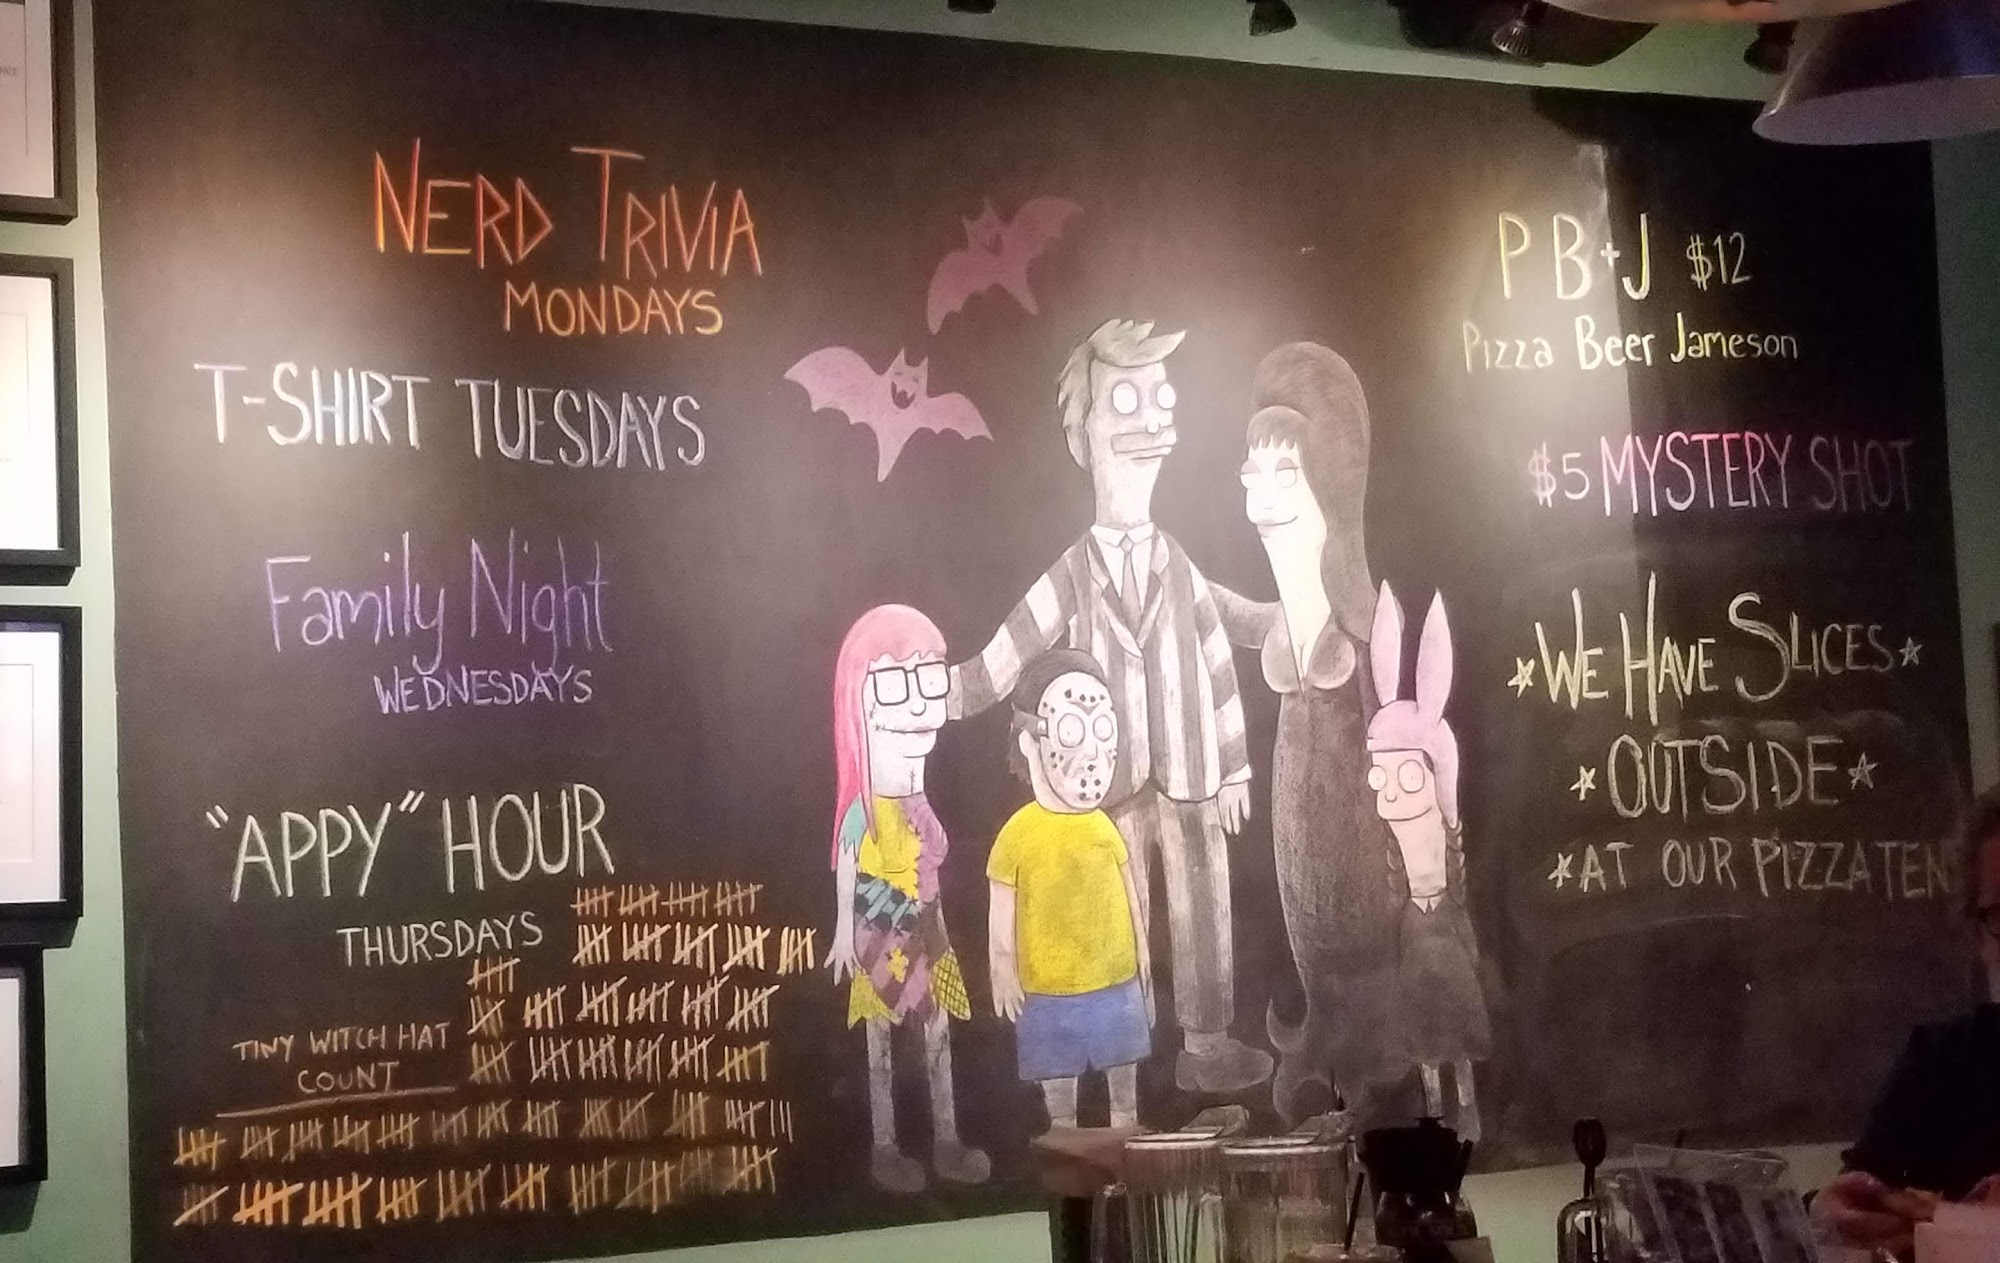 NERD TRIVIA
MONDAYS
T-SHIRT TUESDAYS
Family Night
WEDNESDAYS
"APPY" HOUR
THURSDAYS
TINY WITCH HAT
COUNT
P B+J $12
Pizza Beer Jameson
$5 MYSTERY SHOT
WE HAVE SLICES
OUTSIDE
AT OUR PIZZA TEN